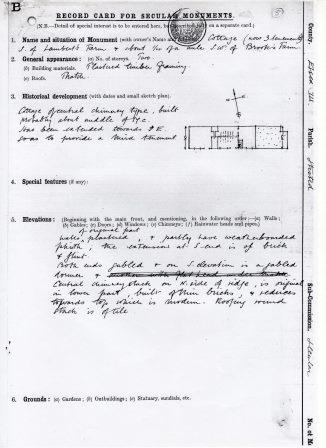 B
RECORD CARD FOR SECULAR MONUMENTS.
(N.B.—Detail of special interest is to be entered here, on a separate card.)
1. Name and situation of Monument (with owner's Name Cottage (now 3 tenements)
S. of Lambert's Farm & about ¼ of a mile S.W. of Brook's Farm
2. General appearance: (a) No. of storeys. Two
(b) Building materials. Plastered timber framing
(c) Roofs. Thatch
3. Historical development (with dates and small sketch plan).
Cottage of central chimney type, built
probably about middle of 17 c.
Has been extended towards E
so as to provide a third tenement
4. Special features (if any):
5. Elevations: (Beginning with the main front, and mentioning, in the following order:—(a) Walls;
(b) Gables; (c) Doors; (d) Windows; (e) Chimneys; (f) Rainwater heads and pipes.)
of original part
walls plastered, & partly have weatherboarded
plinth, the extension at S. end is of brick
& flint
Both ends gabled & on S. elevation is a gabled
dormer &
Central chimney stack on N. side of ridge, is original
in lower part, built of thin bricks, & reduces
towards top which is modern. Roofing round
stack is of tile
6. Grounds: (a) Gardens; (b) Outbuildings; (c) Statuary, sundials, etc.
County.
Essex
Parish.
Sub-Commission.
No. of M